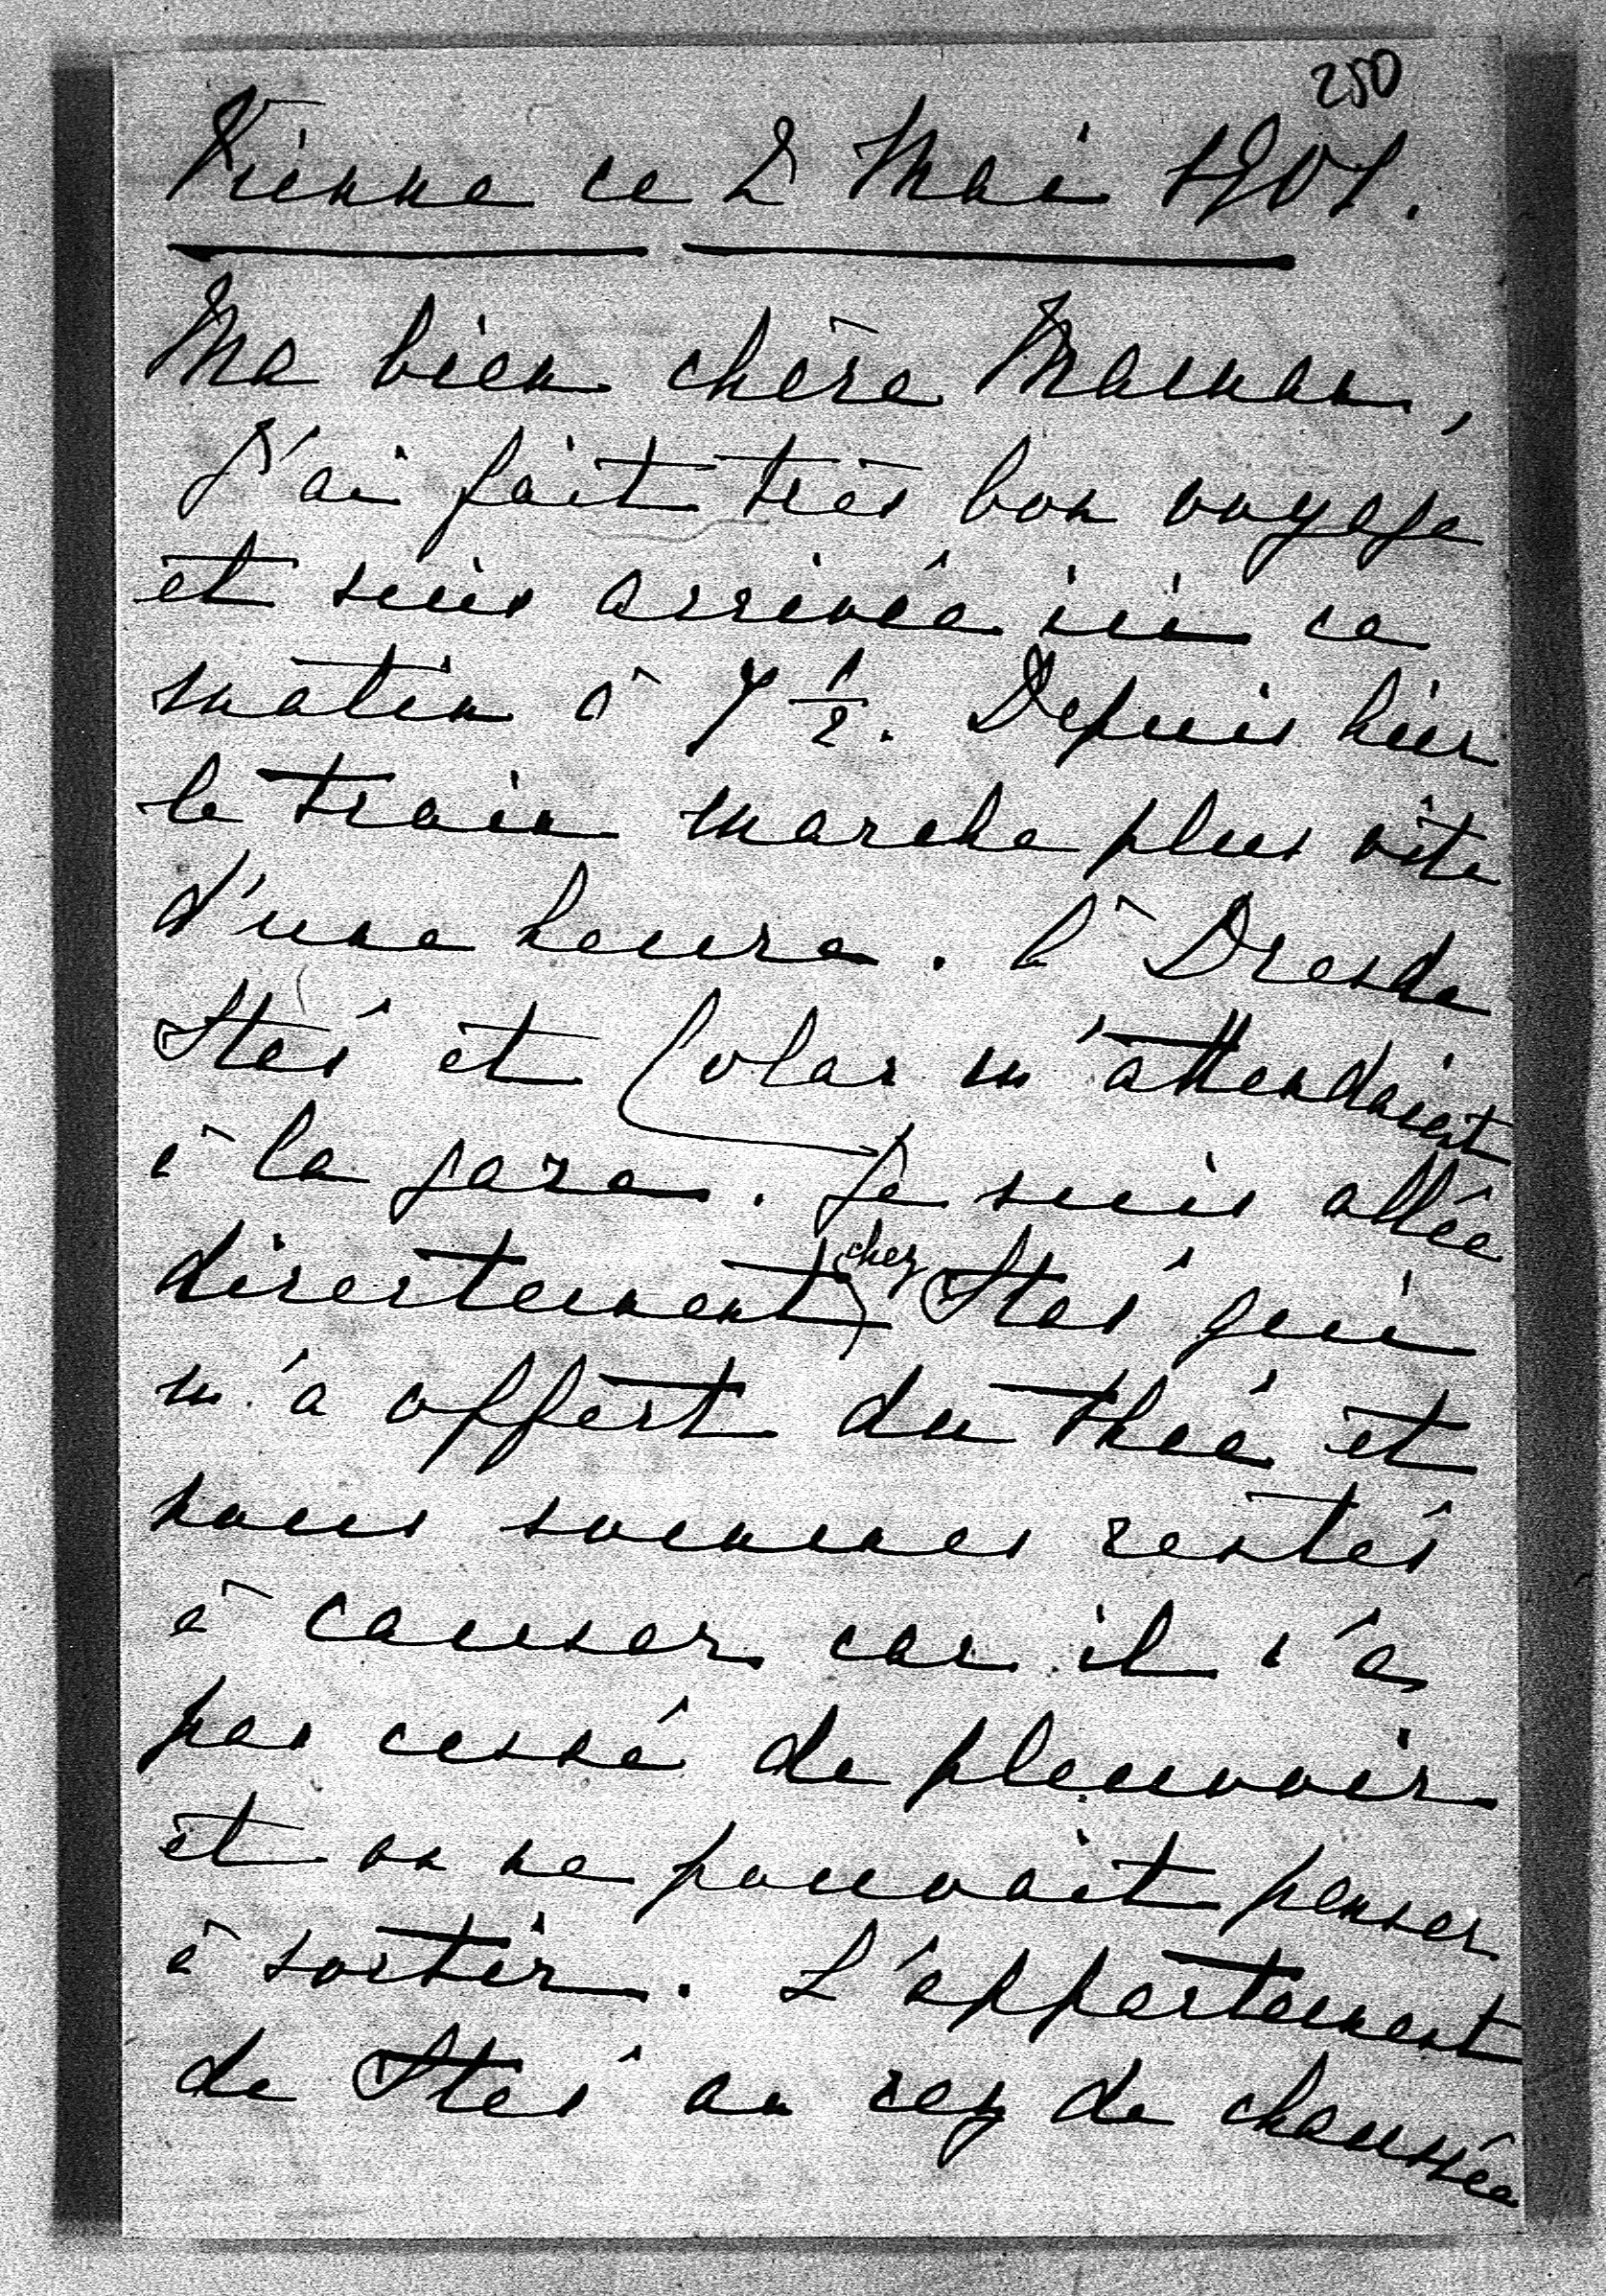 250
Vienne ce 2 Mai 1901.
Ma bien chère Maman,
J'ai fait très bon voyage
et suis arrivée ici ce
matin à 7 1/2. Depuis hier
le train marche plus vite
d'une heure. A Dresde
Stes et Colas m'attendaient
à la gare. Je suis allée
directement chez Stes qui
m'a offert du thé et
nous sommes restés
à causer car il n'a
pas cessé de pleuvoir
et on ne pouvait penser
à sortir. L'appartement
de Stes au rez de chaussée